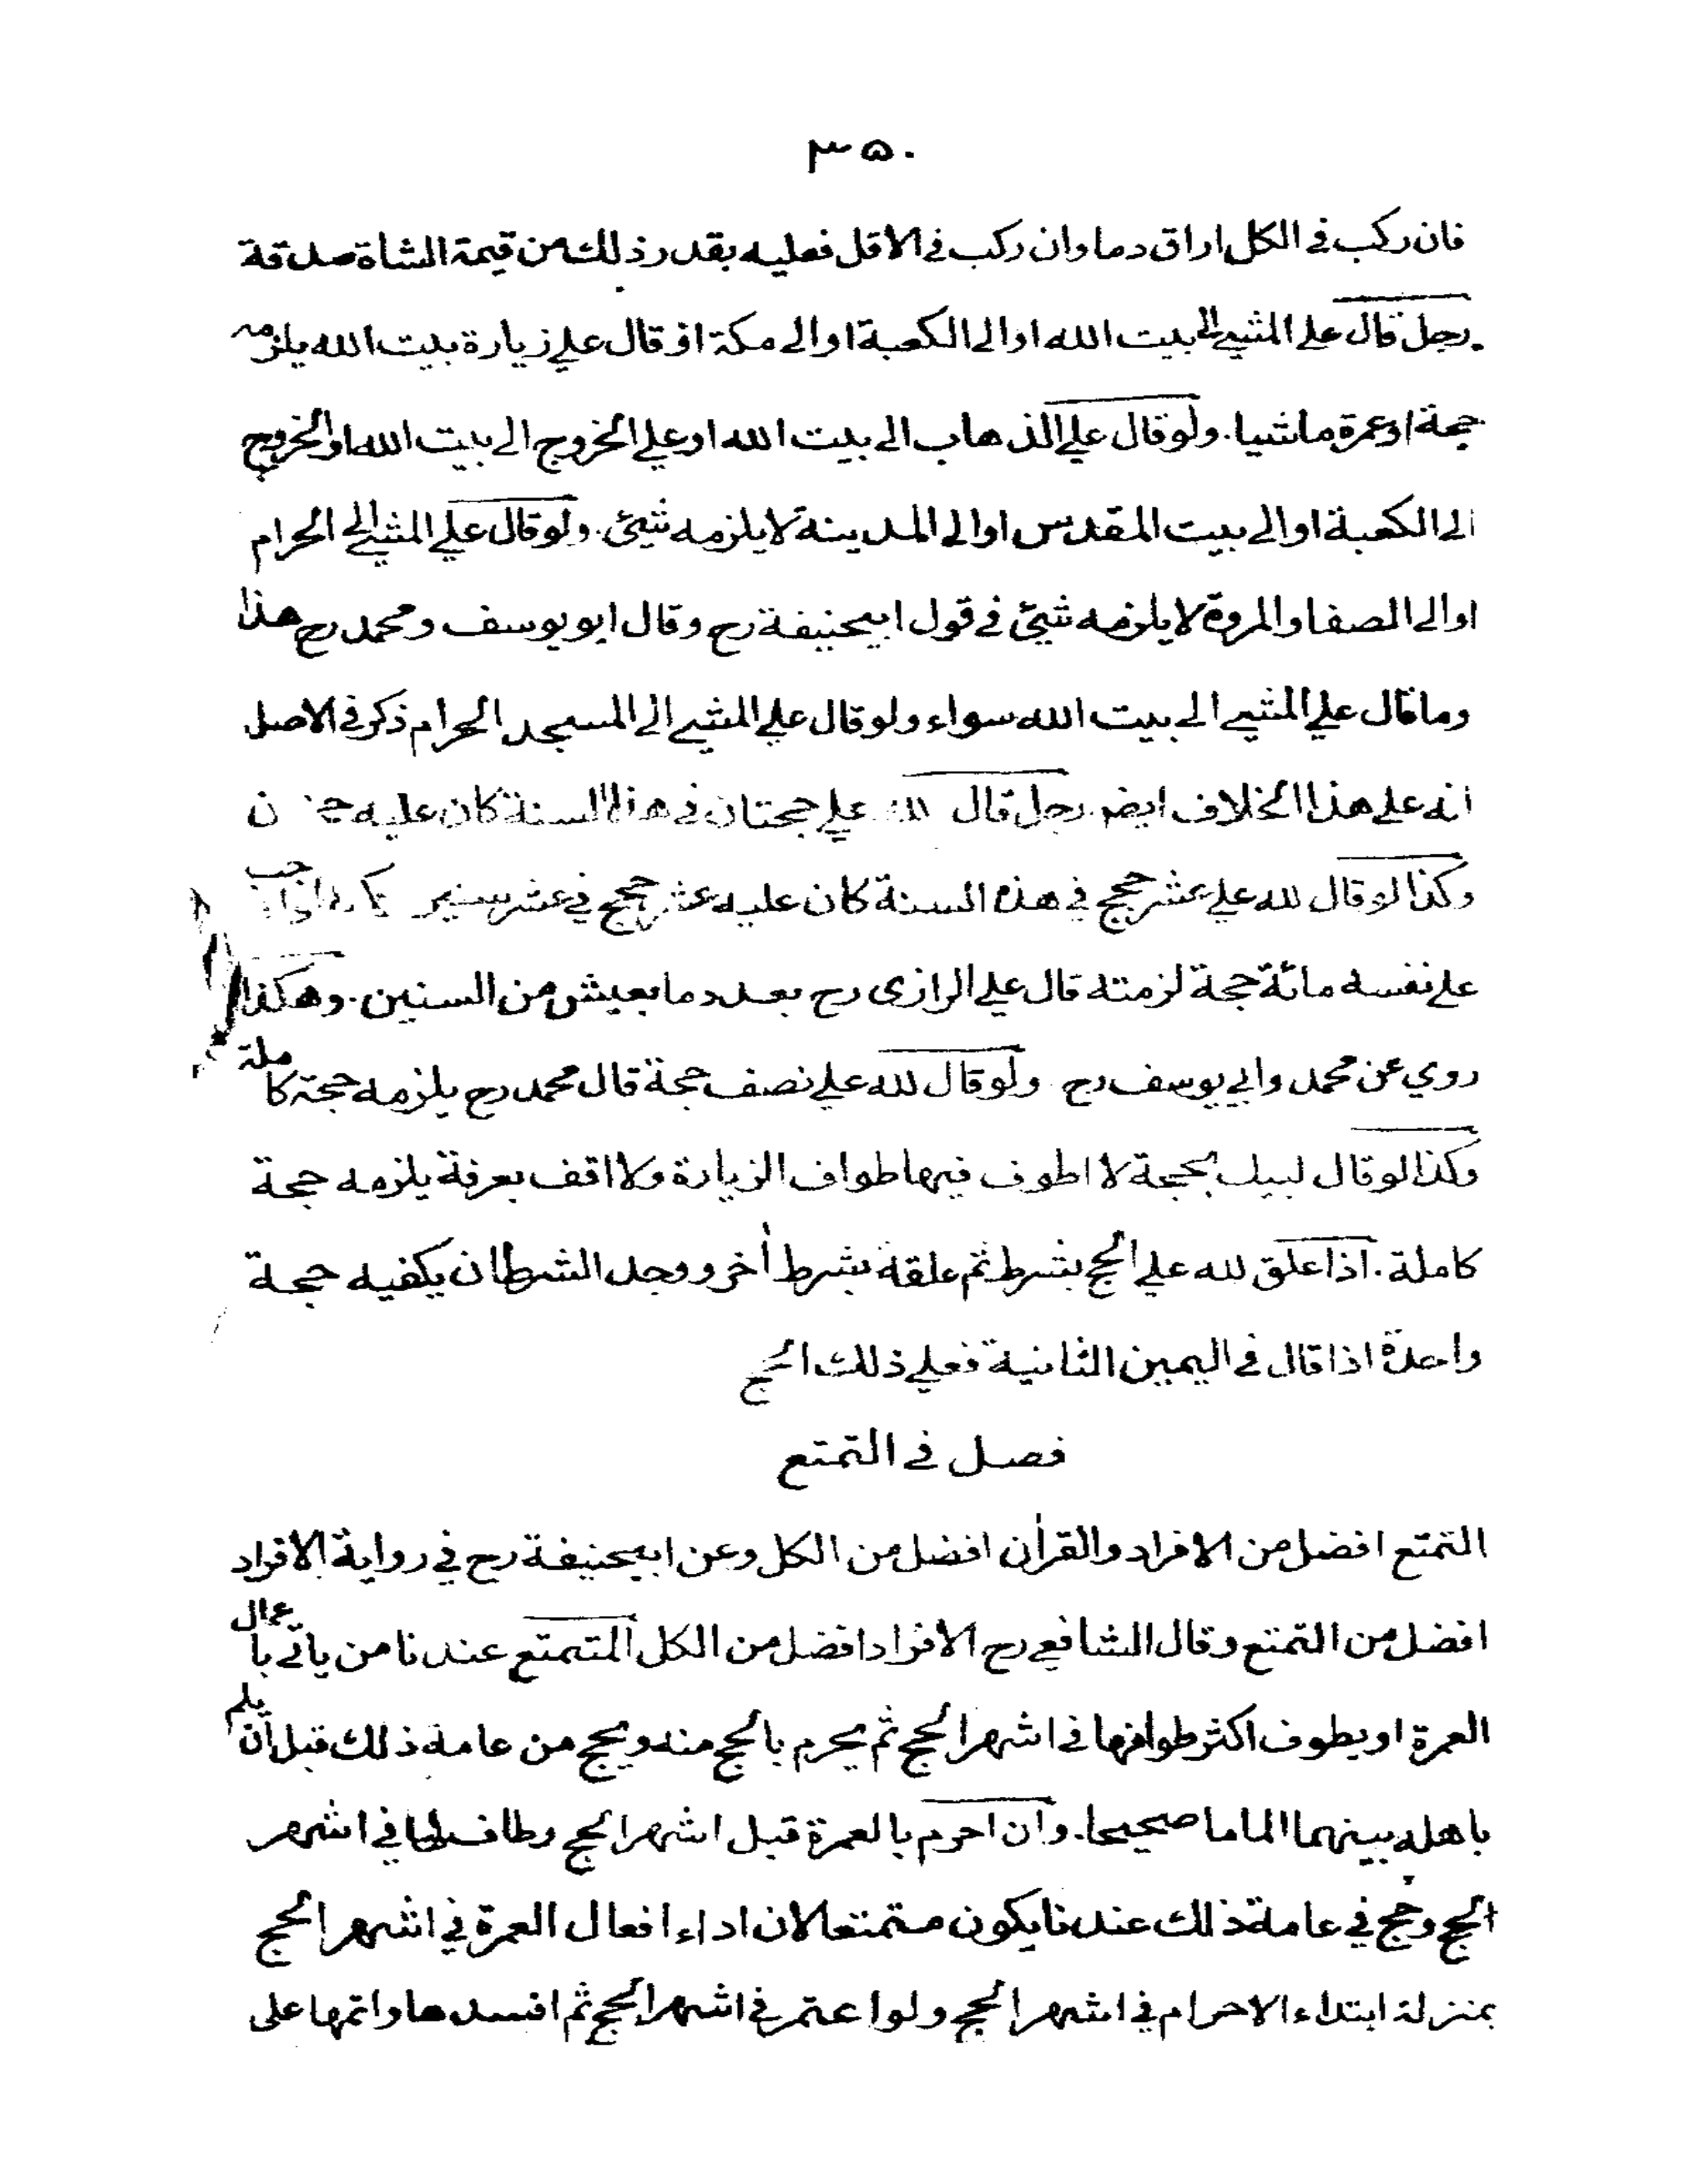 ۳۵۰
فان ركب في الكل اراق دما وان ركب في الاقل فعليه بقدر ذلك من قيمة الشاة صدقة
رجل قال علي المشي الى بيت الله او الى الكعبة او الى مكة او قال علي زيارة بيت الله يلزمه
حجة او عمرة ماشيا. ولو قال علي الذهاب الى بيت الله او علي الخروج الى بيت الله او الخروج
الى الكعبة او الى بيت المقدس او الى المدينة لا يلزمه شيئ. ولو قال علي المشي الى الحرام
او الى الصفا والمروة لا يلزمه شيئ في قول ابيحنيفة رح وقال ابو يوسف ومحمد رح هذا
وما قال علي المشي الى بيت الله سواء ولو قال علي المشي الى المسجد الحرام ذكر في الاصل
انه على هذا الخلاف ايضم رجل قال لله علي حجتان في هذه السنة كان عليه
وكذا لو قال لله علي عشر حجج في هذه السنة كان عليه عشر حجج في عشر سنين
على نفسه مائة حجة لزمته قال علي الرازي رح بعدد ما يعيش من السنين. وهكذا
روي عن محمد وابي يوسف رح ولو قال لله علي نصف حجة قال محمد رح يلزمه حجة كاملة
وكذا لو قال لبيك بحجة لا اطوف فيها طواف الزيارة ولا اقف بعرفة يلزمه حجة
كاملة. اذا علق لله علي الحج بشرط ثم علقه بشرط أخر ووجد الشرطان يكفيه حجة
واحدة اذا قال في اليمين الثانية فعلي ذلك الحج
فصل في التمتع
التمتع افضل من الافراد والقرأن افضل من الكل وعن ابيحنيفة رح في رواية الافراد
افضل من التمتع وقال الشافعي رح الافراد افضل من الكل المتمتع عندنا من ياتي باعمال
العمرة او يطوف اكثر طوافها في اشهر الحج ثم يحرم بالحج منه ويحج من عامه ذلك قبل ان يلم
باهله بينهما الماما صحيحا. وان احرم بالعمرة قبل اشهر الحج وطاف لها في اشهر
الحج وحج في عامه ذلك عندنا يكون متمتعا لان اداء افعال العمرة في اشهر الحج
بمنزلة ابتداء الاحرام في اشهر الحج ولو اعتمر في اشهر الحج ثم افسدها واتمها على